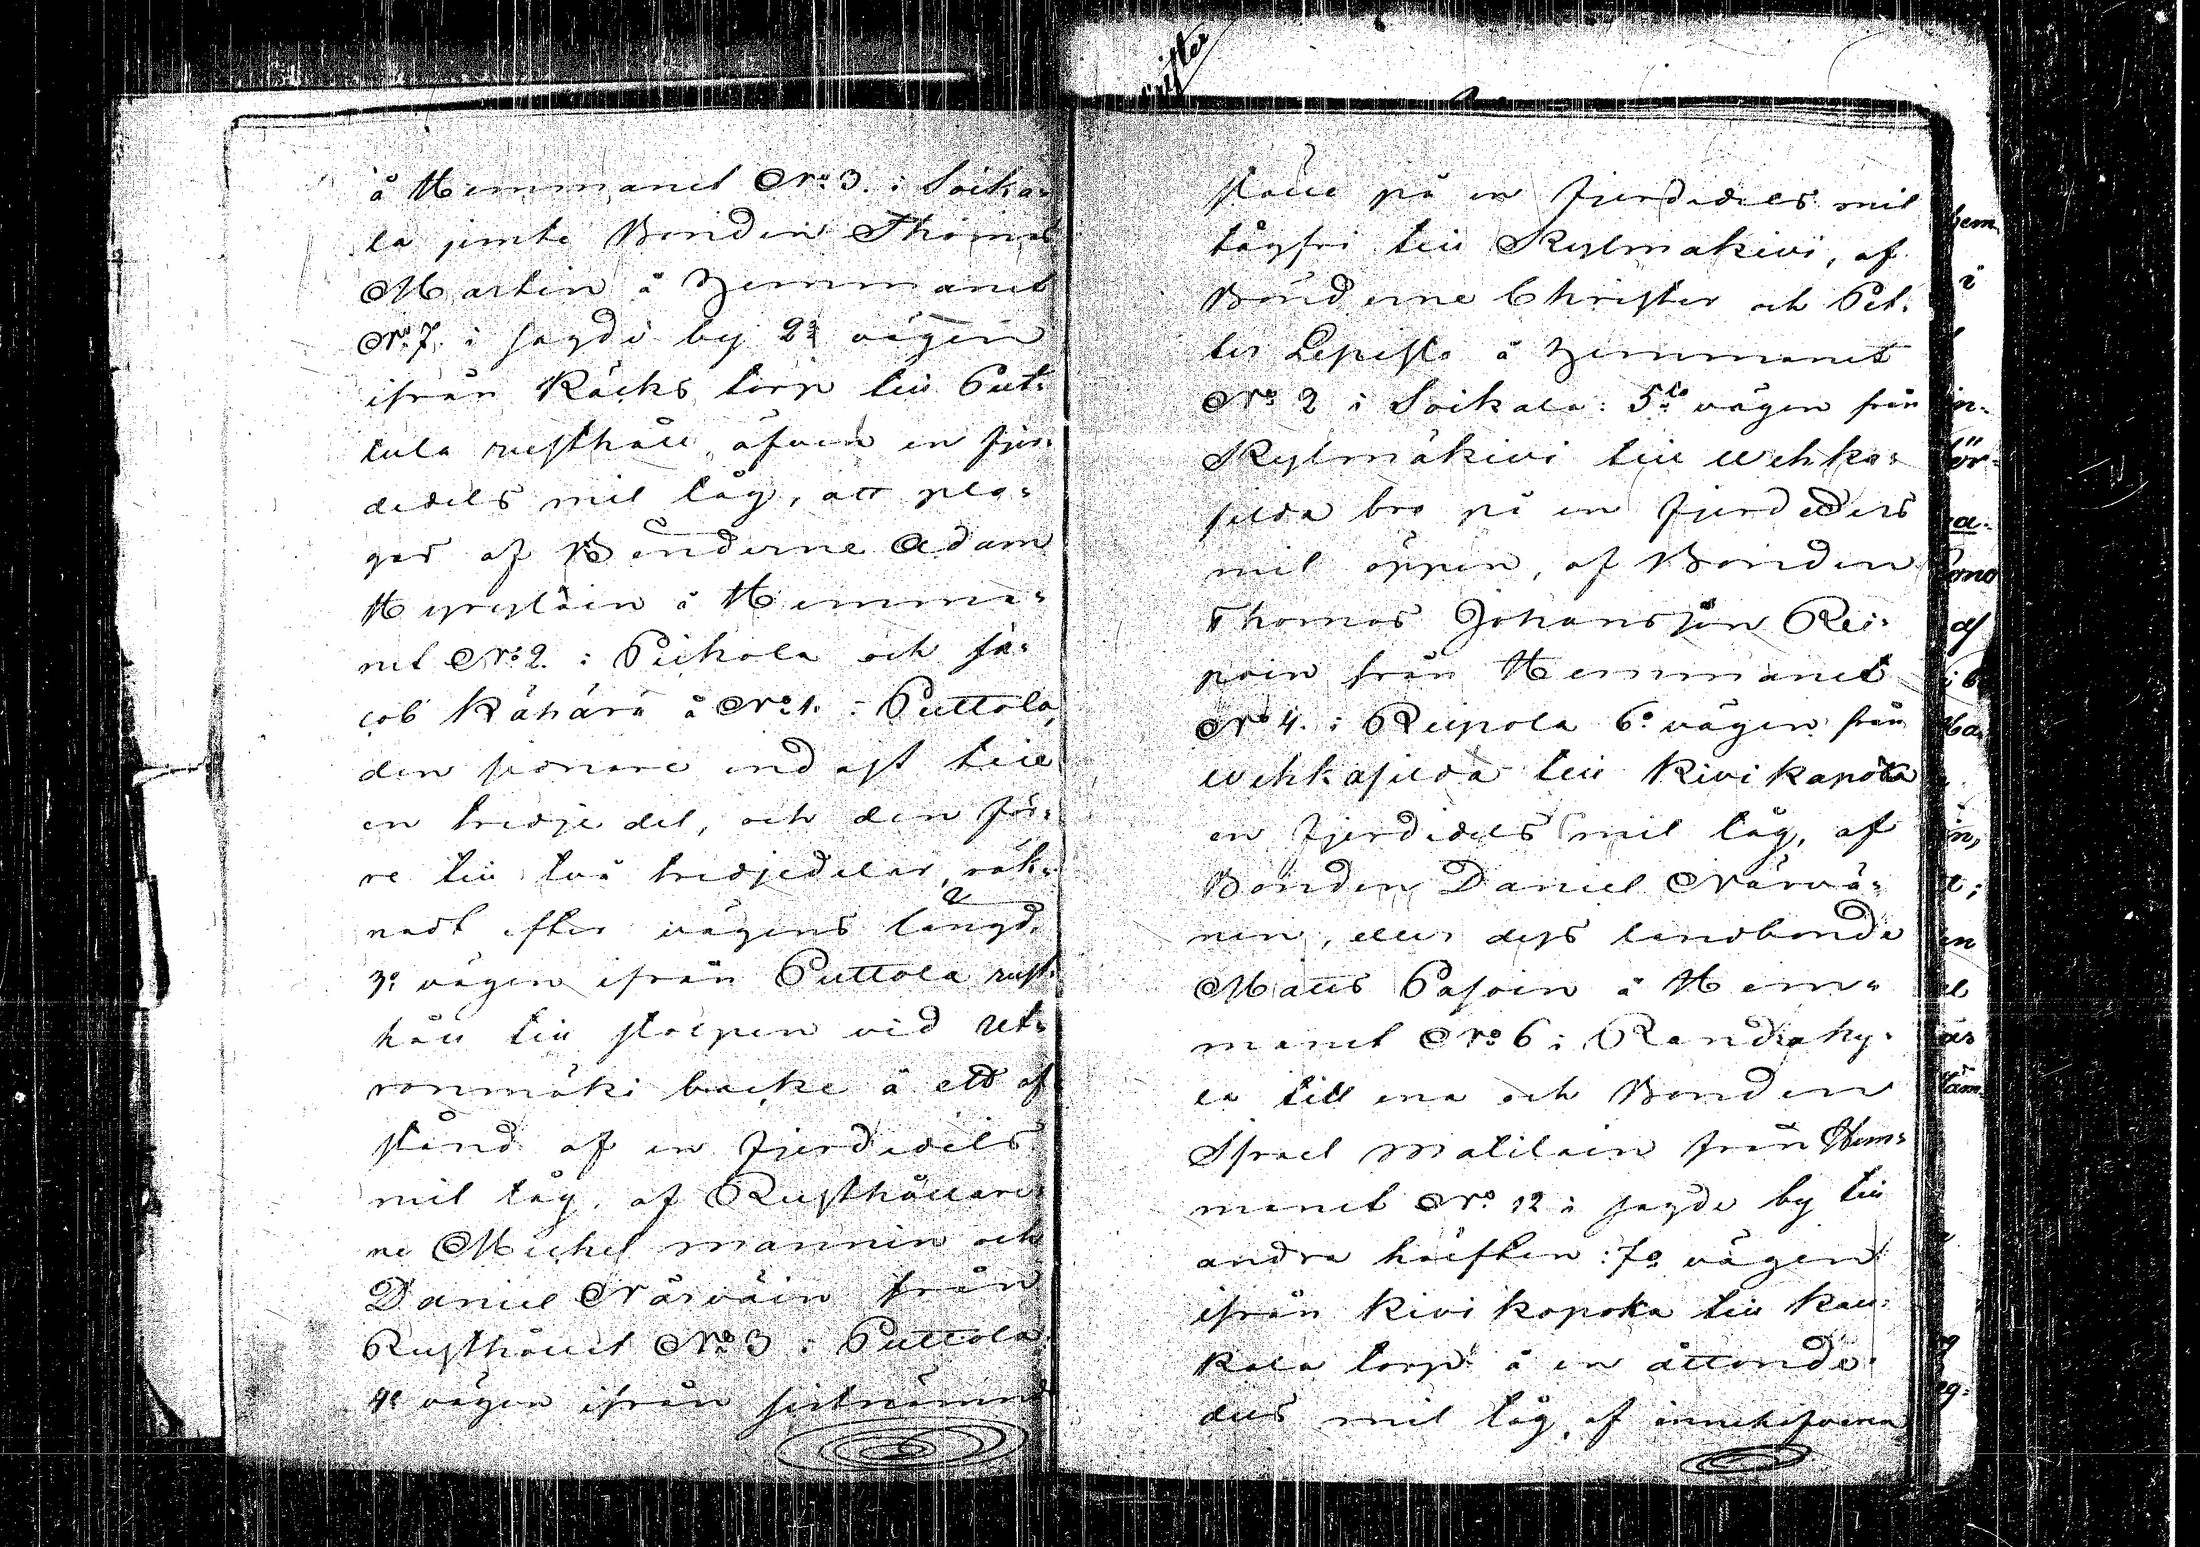 å Hemmanet No 3. i Soika=
la jemte Bonden Thomas
Martin å Hemmanet
No 7. i sagde by 2a vägen
ifrån Räcks torp till Put=
tula rusthåll äfven en fjer=
dedels mil låg, att pla=
gas af Bönderne Adam
Hyryläin å Hemma=
net No 2. i Pickola och Ja=
cob Kähärä å No 1. i Puttola,
den sednare endast till
en tredjedel, och den för=
re till två tredjedelar, räk=
nadt efter vägens längd.
3o vägen ifrån Puttola rust=
håll till stolpen vid Ut=
ronmäki backe å ett af
stånd af en fjerdedels
mil låg, af Rusthållare=
ne Michel Mannin och
Daniel Närväin från
Rusthållet No 3 i Puttola.
4o vägen ifrån sistnämnd
ställe på en fjerdedels mil
lågfri till Kylmäkivi, af
Bönderne Christer och Pet=
ter Lepistö å Hemmanet
No 2 i Soikala: 5to vägen från
Kylmäkivi till Wehka=
silda bro på en fjerdedels
mil öppen, af Bonden
Thomas Johansson Rei=
poin från Hemmanet
No 4. i Reipola 6o vägen från
Wehkasilda till Kivikapoka
en fjerdedels mil låg, af
Bonden Daniel Närvä=
nen, eller dess landbonde
Matts Pasoin å Hem=
manet No 6 i Randaky=
la till ena och Bonden
Israel Matilain från Hem=
manet No 12 i sagde by till
andra hälften: 7o vägen
ifrån Kivikopoka till Kau=
kala torp å en åttonde=
dels mil låg, af innehafvarna